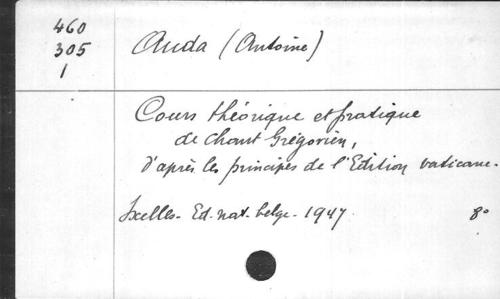 460
305
1
Auda (Antoine)
Cours théorique et pratique
de chant Grégorien,
d'après les principes de l'Edition vaticane.
Ixelles. Ed. nat. belge. 1947. 8°